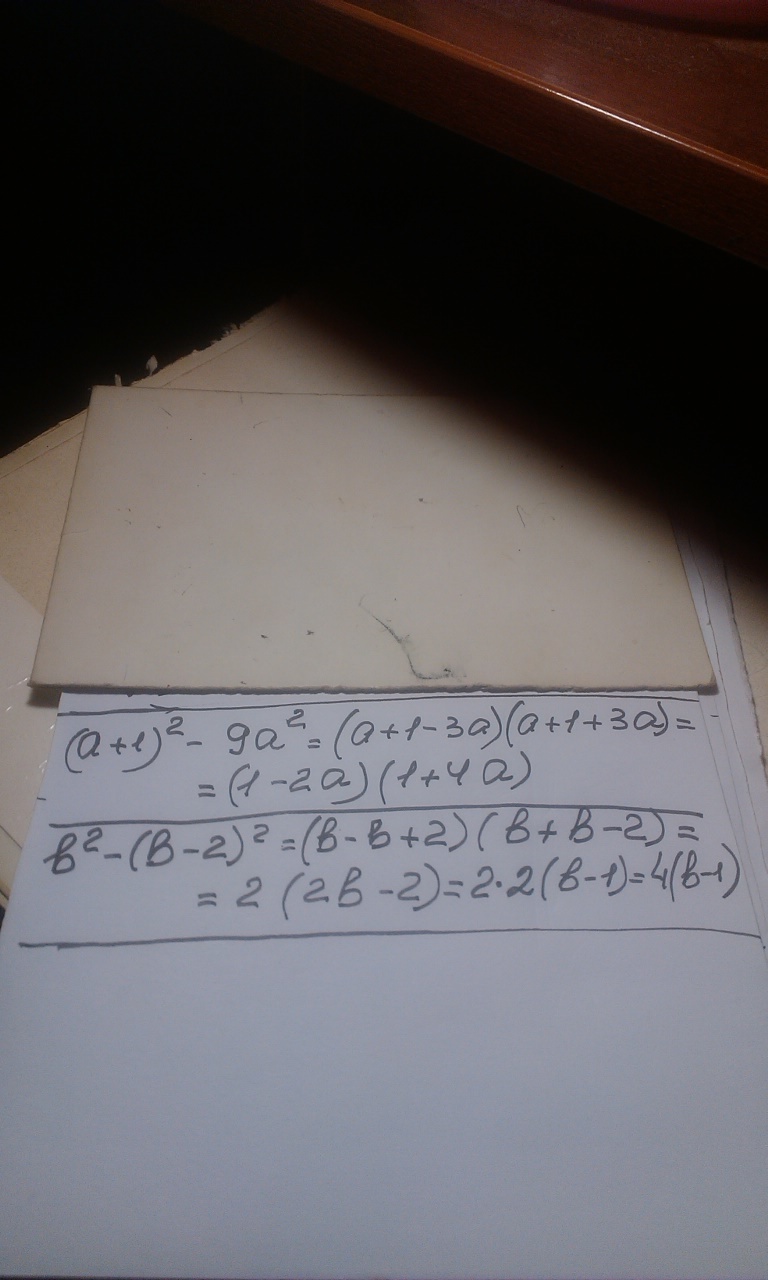 (a+1)² - 9a² = (a+1-3a)(a+1+3a) =
= (1-2a)(1+4a)
в² - (в-2)² = (в-в+2)(в+в-2) =
= 2(2в-2) = 2·2(в-1) = 4(в-1)